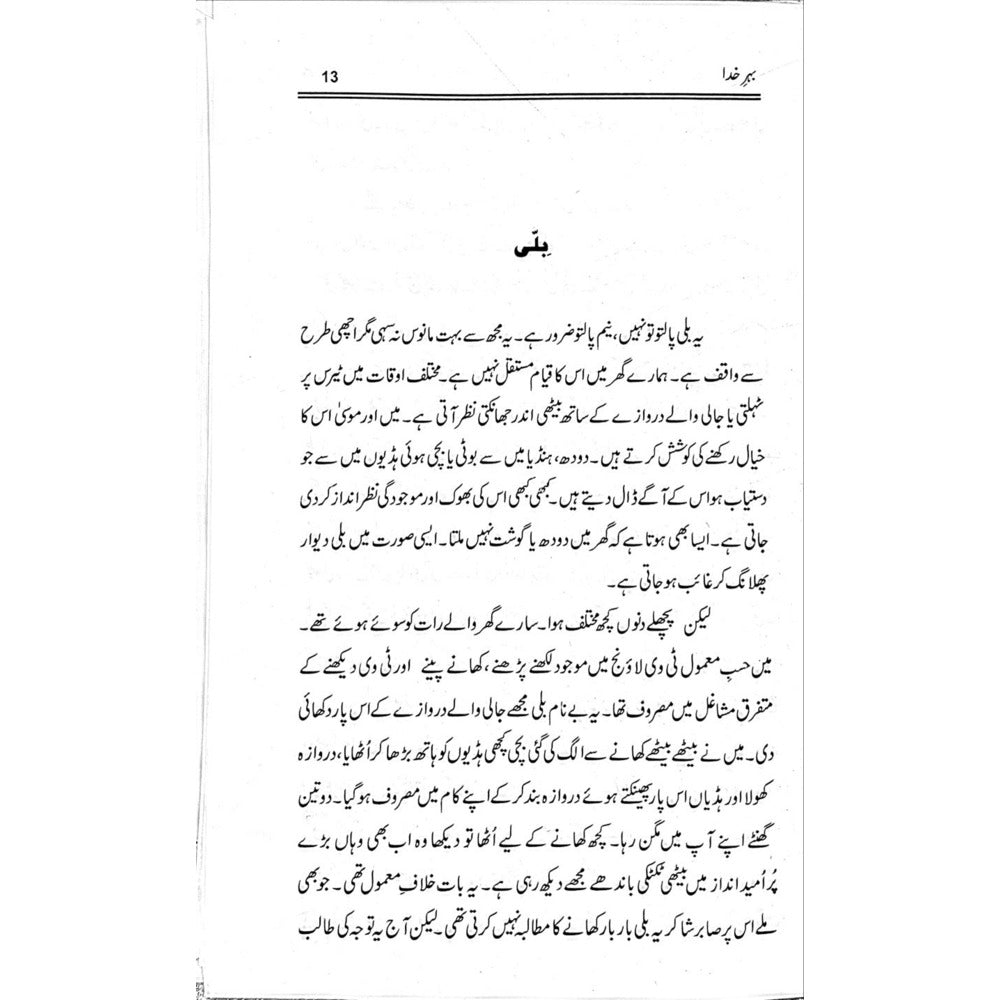 بہرِ خدا
13
بِلّی
یہ بلی پالتو تو نہیں، نیم پالتو ضرور ہے۔ یہ مجھ سے بہت مانوس نہ سہی مگر اچھی طرح
سے واقف ہے۔ ہمارے گھر میں اس کا قیام مستقل نہیں ہے۔ مختلف اوقات میں ٹیرس پر
ٹہلتی یا جالی والے دروازے کے ساتھ بیٹھی اندر جھانکتی نظر آتی ہے۔ میں اور موسیٰ اس کا
خیال رکھنے کی کوشش کرتے ہیں۔ دودھ، ہنڈیا میں سے بوٹی یا بچی ہوئی ہڈیوں میں سے جو
دستیاب ہو اس کے آگے ڈال دیتے ہیں۔ کبھی کبھی اس کی بھوک اور موجودگی نظر انداز کر دی
جاتی ہے۔ ایسا بھی ہوتا ہے کہ گھر میں دودھ یا گوشت نہیں ملتا۔ ایسی صورت میں بلی دیوار
پھلانگ کر غائب ہو جاتی ہے۔
لیکن پچھلے دنوں کچھ مختلف ہوا۔ سارے گھر والے رات کو سوئے ہوئے تھے۔
میں حسبِ معمول ٹی وی لاؤنج میں موجود لکھنے پڑھنے، کھانے پینے اور ٹی وی دیکھنے کے
متفرق مشاغل میں مصروف تھا۔ یہ بے نام بلی مجھے جالی والے دروازے کے اس پار دکھائی
دی۔ میں نے بیٹھے بیٹھے کھانے سے الگ کی گئی بچی کھچی ہڈیوں کو ہاتھ بڑھا کر اُٹھایا، دروازہ
کھولا اور ہڈیاں اس پار پھینکتے ہوئے دروازہ بند کر کے اپنے کام میں مصروف ہو گیا۔ دو تین
گھنٹے اپنے آپ میں مگن رہا۔ کچھ کھانے کے لیے اُٹھا تو دیکھا وہ اب بھی وہاں بڑے
پُر اُمید انداز میں بیٹھی ٹکٹکی باندھے مجھے دیکھ رہی ہے۔ یہ بات خلافِ معمول تھی۔ جو بھی
ملے اس پر صابر شاکر یہ بلی بار بار کھانے کا مطالبہ نہیں کرتی تھی۔ لیکن آج یہ توجہ کی طالب